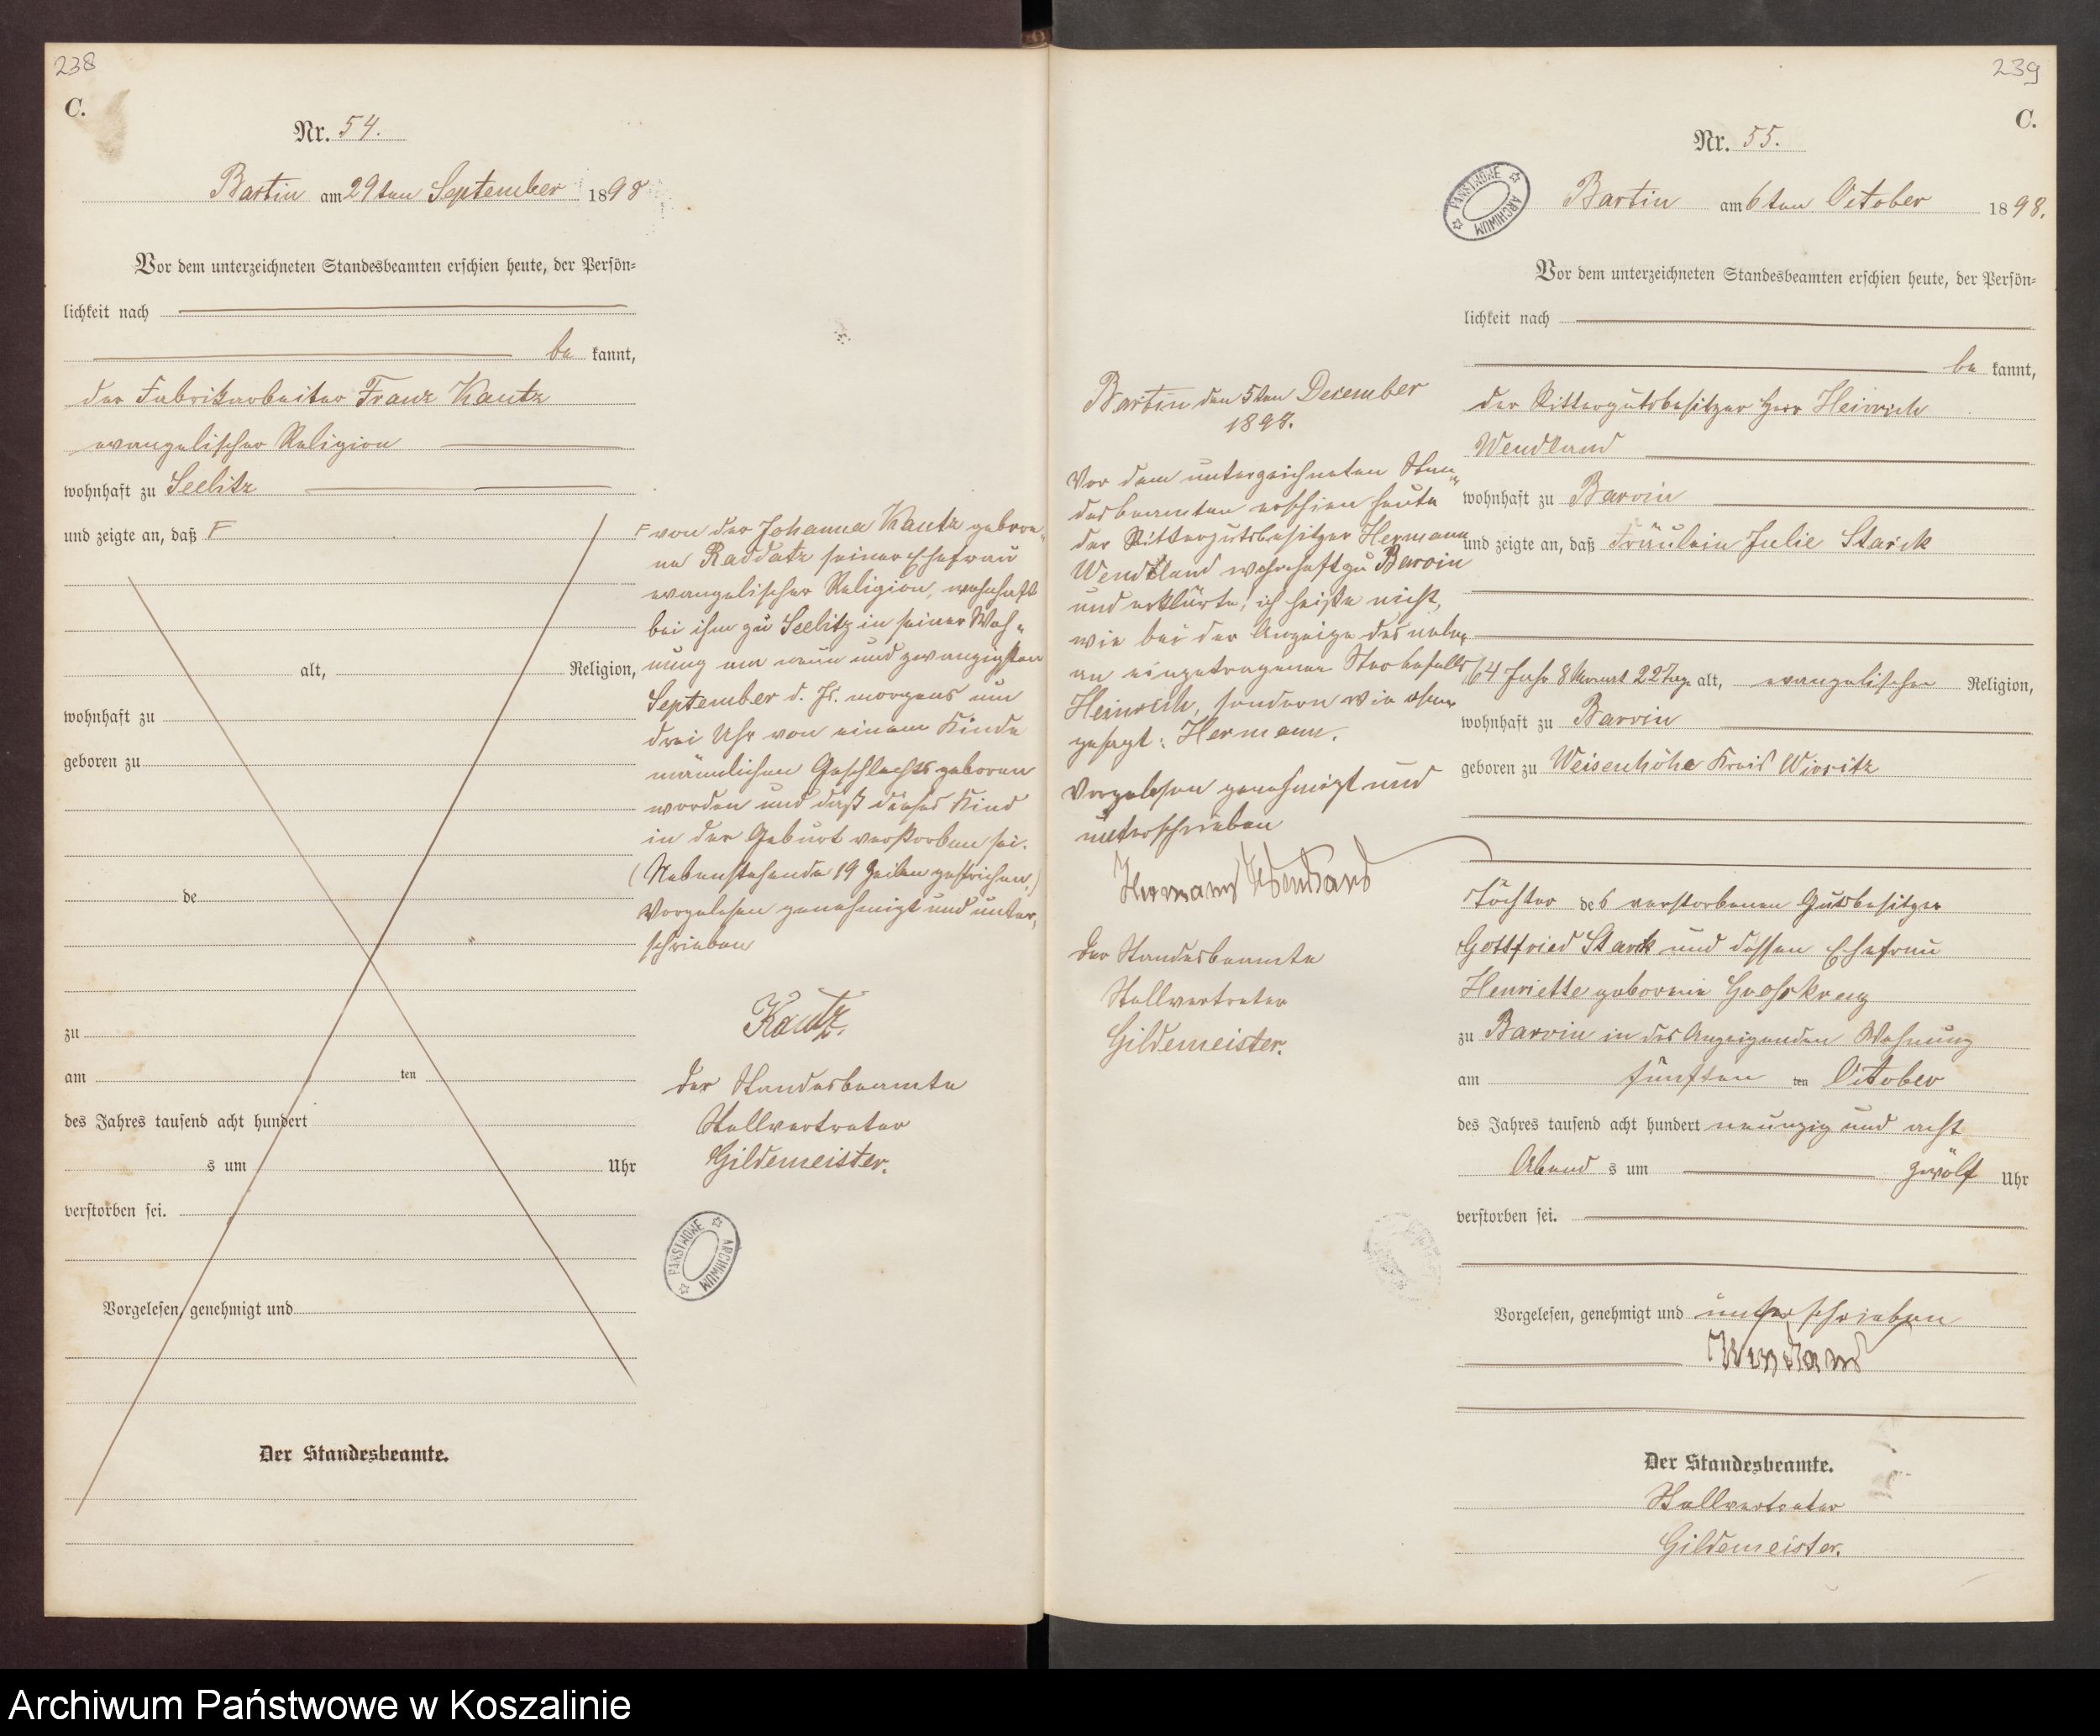 238
C.
Nr. 54.
Bartin am 29ten September 1898
Vor dem unterzeichneten Standesbeamten erschien heute, der Persön=
lichkeit nach
be kannt,
der Fabrikarbeiter Franz Kautz
evangelischer Religion
wohnhaft zu Seelitz
und zeigte an, daß F
alt, Religion,
wohnhaft zu
geboren zu
de
zu
am ten
des Jahres tausend acht hundert
s um Uhr
verstorben sei.
Vorgelesen, genehmigt und
Der Standesbeamte.
F von der Johanna Kautz gebore„
ne Raddatz seiner Ehefrau
evangelischer Religion, wohnhaft
bei ihm zu Seelitz in seiner Woh„
nung am neun und zwanzigsten
September d. Js. morgens um
drei Uhr von einem Kinde
männlichen Geschlechts geboren
worden und daß dieses Kind
in der Geburt verstorben sei.
(Nebenstehende 19 Zeilen gestrichen,)
Vorgelesen genehmigt und unter„
schrieben
Kautz.
Der Standesbeamte
Stellvertreter
Gildemeister.
PAŃSTWOWE ARCHIWUM
239
C.
Nr. 55.
PAŃSTWOWE ARCHIWUM
Bartin am 6ten October 1898.
Vor dem unterzeichneten Standesbeamten erschien heute, der Persön=
lichkeit nach
be kannt,
der Rittergutsbesitzer Herr Heinrich
Wendland
wohnhaft zu Barvin
und zeigte an, daß Fräulein Julie Starck
64 Jahr 8 Monat 22 Tage alt, evangelischer Religion,
wohnhaft zu Barvin
geboren zu Weisenhöhe Kreis Wirsitz
Tochter des verstorbenen Gutsbesitzer
Gottfried Starck und dessen Ehefrau
Henriette geborene Grosskreuz
zu Barvin in des Anzeigenden Wohnung
am fünften ten October
des Jahres tausend acht hundert neunzig und acht
Abend s um zwölf Uhr
verstorben sei.
Vorgelesen, genehmigt und unterschrieben
Wendland
Der Standesbeamte.
Stellvertreter
Gildemeister.
Bartin den 5ten December
1898.
Vor dem unterzeichneten Stan„
desbeamten erschien heute
der Rittergutsbesitzer Hermann
Wendland wohnhaft zu Barvin
und erklärte: ich heiße nicht,
wie bei der Anzeige des neben
an eingetragenen Sterbefalls
Heinrich, sondern wie oben
gesagt: Hermann.
Vorgelesen genehmigt und
unterschrieben
Hermann Wendland
Der Standesbeamte
Stellvertreter
Gildemeister.
Archiwum Państwowe w Koszalinie